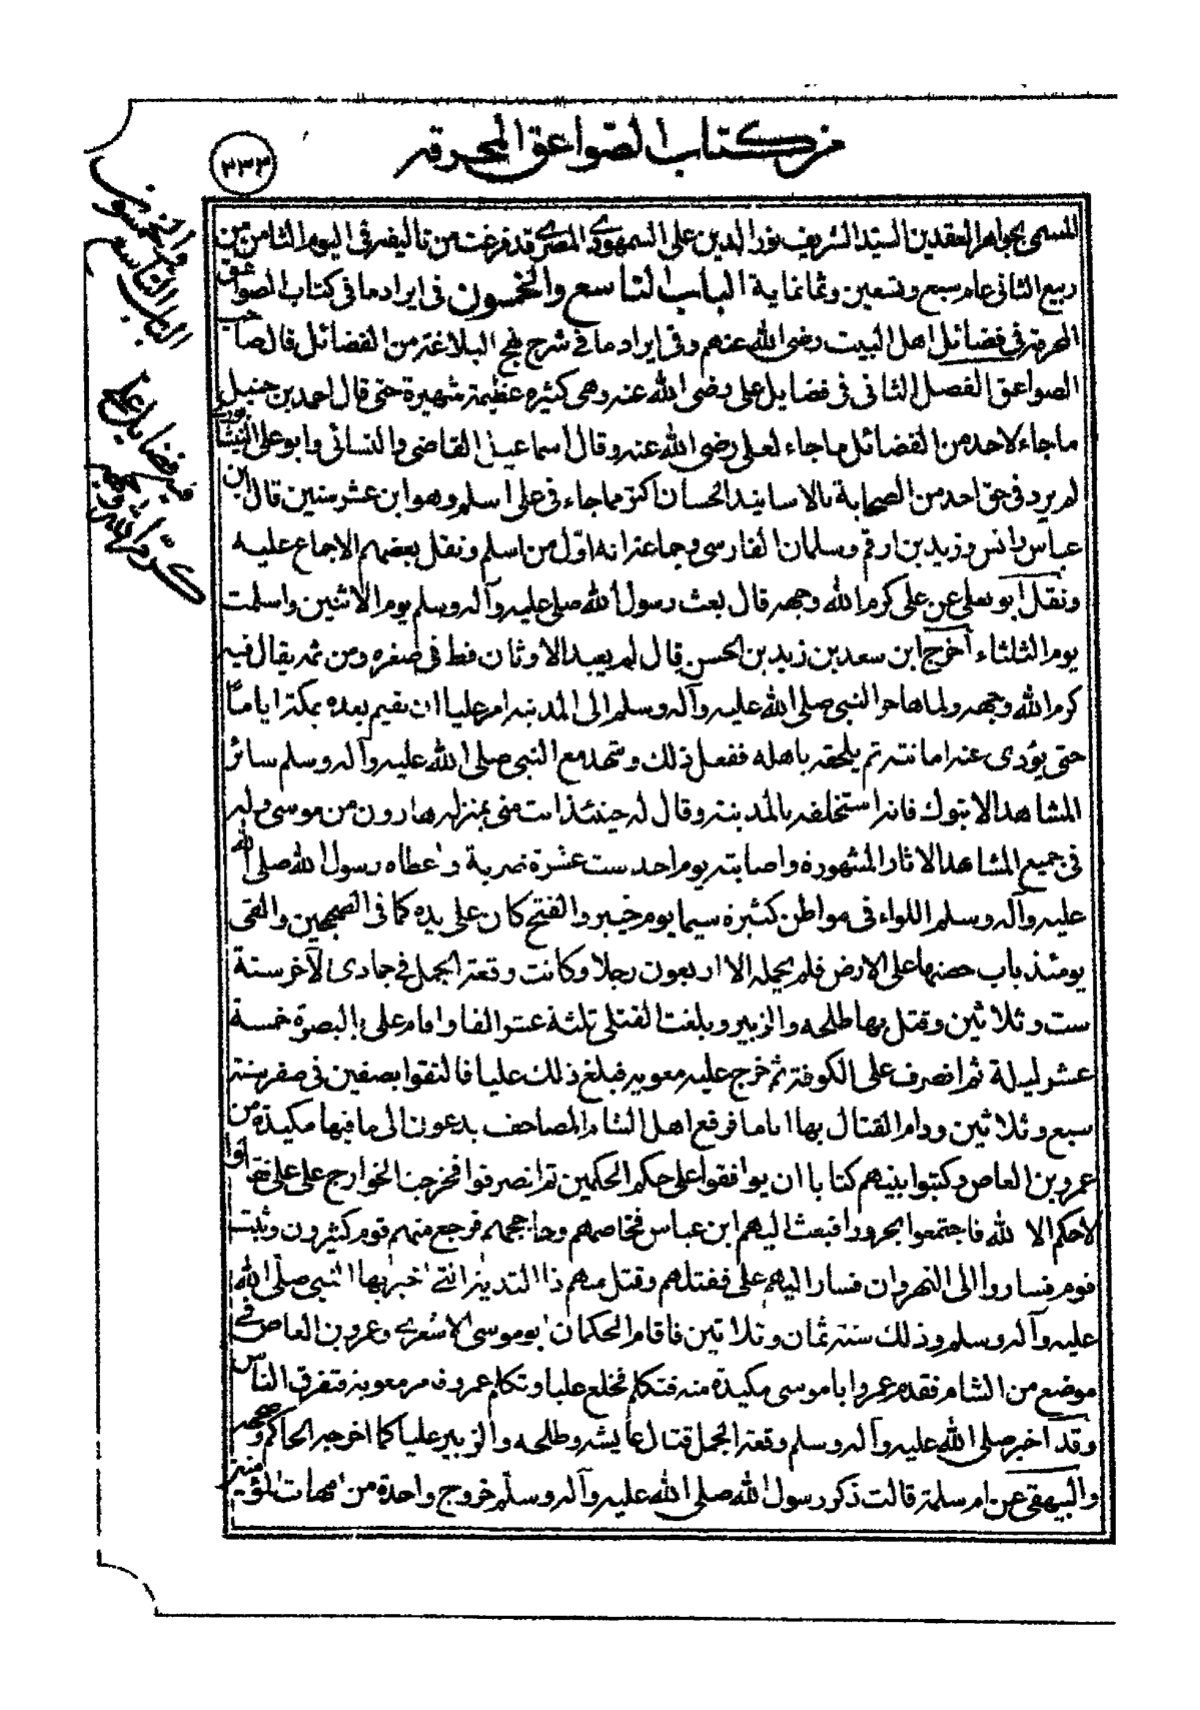 من كتاب الصواعق المحرقة
٢٣٣
المسمى بجواهر العقدين السيد الشريف نور الدين على السمهودى المصرى قد فرغت من تاليفه فى اليوم الثامن من
ربيع الثانى عام سبع وتسعين وثمانماية الباب التاسع والخمسون فى ايراد ما فى كتاب الصواعق
المحرقة فى فضائل اهل البيت رضى الله عنهم وفى ايراد ما فى شرح نهج البلاغة من الفضائل قال صاحب
الصواعق الفصل الثانى فى فضايل على رضى الله عنه وهى كثيرة عظيمة شهيرة حتى قال احمد بن حنبل
ما جاء لاحد من الفضائل ما جاء لعلى رضى الله عنه وقال اسماعيل القاضى والنسائى وابو على النيشابورى
لم يرد فى حق احد من الصحابة بالاسانيد الحسان اكثر مما جاء فى على اسلم وهو ابن عشر سنين قال ابن
عباس وانس وزيد بن ارقم وسلمان الفارسى وجماعة انه اول من اسلم ونقل بعضهم الاجماع عليه
ونقل ابو يعلى عن على كرم الله وجهه قال بعث رسول الله صلى عليه وآله وسلم يوم الاثنين واسلمت
يوم الثلثاء اخرج ابن سعد بن زيد بن الحسن قال لم يعبد الاوثان قط فى صغره ومن ثم يقال فيه
كرم الله وجهه ولما هاجر النبى صلى الله عليه وآله وسلم الى المدينة امر عليا ان يقيم بعده بمكة اياما
حتى يؤدى عنه امانته ثم يلحقه باهله ففعل ذلك وشهد مع النبى صلى الله عليه وآله وسلم سائر
المشاهد الا تبوك فانه استخلفه بالمدينة وقال له حينئذ انت منى بمنزلة هارون من موسى وله
فى جميع المشاهد الاثار المشهورة واصابته يوم احد ست عشرة ضربة واعطاه رسول الله صلى الله
عليه وآله وسلم اللواء فى مواطن كثيرة سيما يوم خيبر والفتح كان على يده كما فى الصحيحين والقى
يومئذ باب حصنها على الارض فلم يحمله الا اربعون رجلا وكانت وقعة الجمل فى جمادى الآخر سنة
ست وثلاثين وقتل بها طلحه والزبير وبلغت القتلى ثلثة عشر الفا واقام على بالبصرة خمسة
عشر ليلة ثم انصرف على الكوفة ثم خرج عليه معويه فبلغ ذلك عليا فالتقوا بصفين فى صفر سنة
سبع وثلاثين ودام القتال بها اياما فرفع اهل الشام المصاحف يدعون الى ما فيها مكيدة من
عمرو بن العاص وكتبوا بينهم كتابا ان يوافقوا على حكم الحكمين ثم انصرفوا فخرجت الخوارج على على فقالوا
لا حكم الا لله فاجتمعوا بحرورا فبعث اليهم ابن عباس فخاصمهم وحاججهم فرجع منهم قوم كثيرون وثبت
قوم فساروا الى النهروان فسار اليهم على فقتلهم وقتل منهم ذا الثدية التى اخبر بها النبى صلى الله
عليه وآله وسلم وذلك سنة ثمان وثلاثين فاقام الحكمان ابو موسى الاشعرى وعمرو بن العاص فى
موضع من الشام فقدم عمرو ابا موسى مكيدة منه فتكلم فخلع عليا وتكلم عمرو فامر معوية فتفرق الناس
وقد اخبر صلى الله عليه وآله وسلم وقعة الجمل قتال عايشه وطلحه والزبير عليا كما اخرجه الحاكم وصححه
والبيهقى عن ام سلمة قالت ذكر رسول الله صلى الله عليه وآله وسلم خروج واحدة من امهات المؤمنين
الباب التاسع
والخمسون
فى فضايل على
كرم الله وجهه